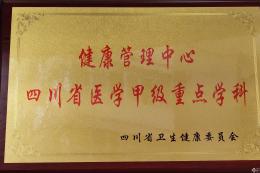 健康管理中心
四川省医学甲级重点学科
四川省卫生健康委员会